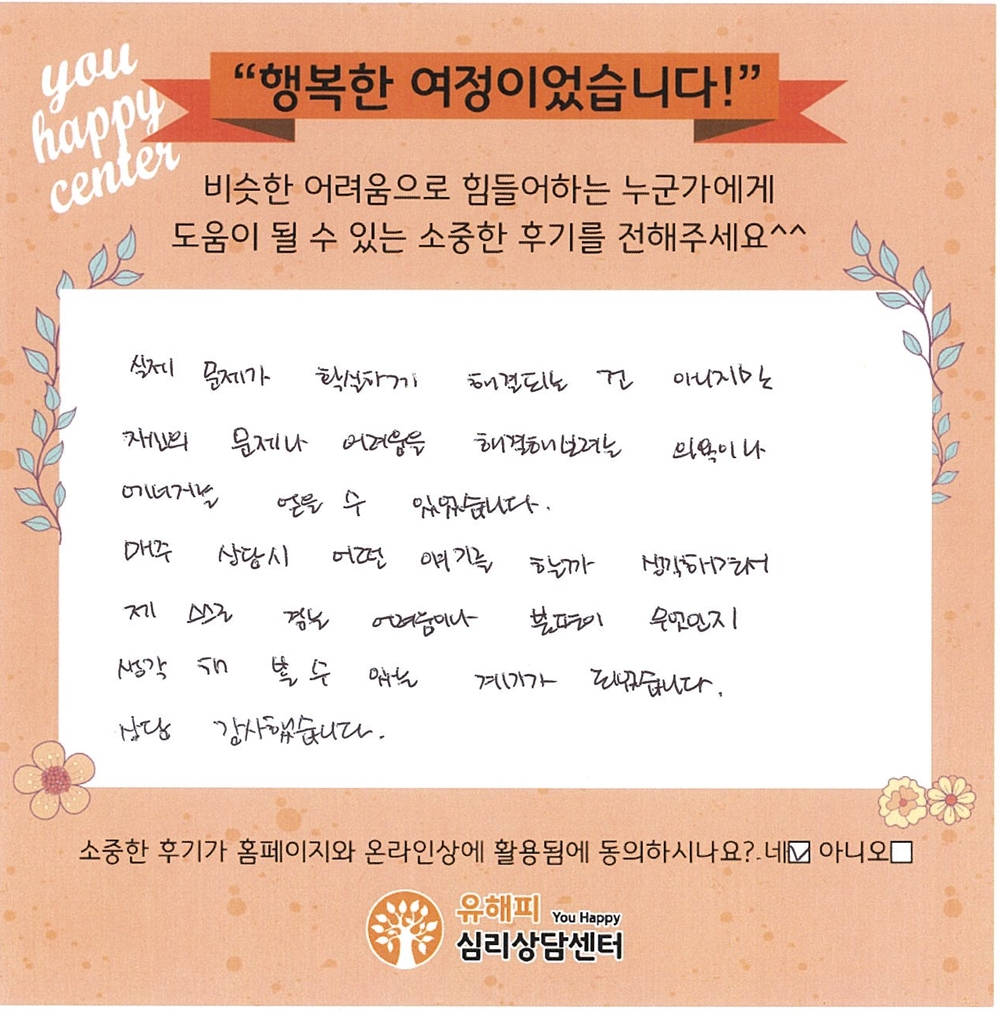 you
happy
center
“행복한 여정이었습니다!”
비슷한 어려움으로 힘들어하는 누군가에게
도움이 될 수 있는 소중한 후기를 전해주세요^^
실제 문제가 확실하게 해결되는 건 아니지만
자신의 문제나 어려움을 해결해보려는 의욕이나
에너지를 얻을 수 있었습니다.
매주 상담시 어떤 얘기를 할까 생각해가면서
제 스스로 겪는 어려움이나 불편이 무엇인지
생각 해 볼 수 있는 계기가 되었습니다.
상담 감사했습니다.
소중한 후기가 홈페이지와 온라인상에 활용됨에 동의하시나요? 네☑ 아니오☐
유해피 You Happy
심리상담센터